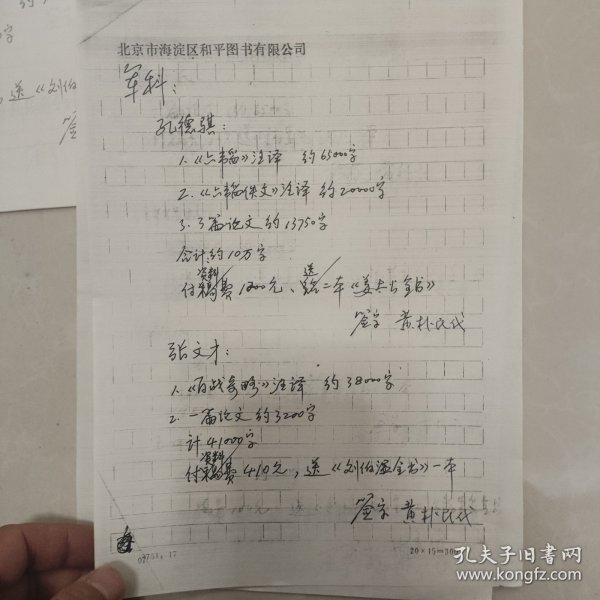 北京市海淀区和平图书有限公司
军科：
孔德骐：
1.《六韬》注译 约65000字
2.《六韬佚文》注译 约20000字
3. 3篇论文 约13750字
合计约10万字
付资料费1200元、送二本《姜太公全书》
签字 黄朴民代
张文才：
1.《百战奇略》注译 约38000字
2. 一篇论文 约3200字
计41000字
付资料费410元，送《刘伯温全书》一本
签字 黄朴民代
20×15=300
送《刘伯
签
孔夫子旧书网
www.kongfz.com